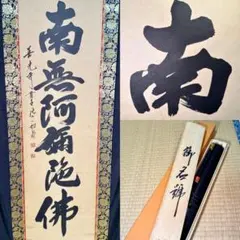 南無阿彌陀佛
南
御名號